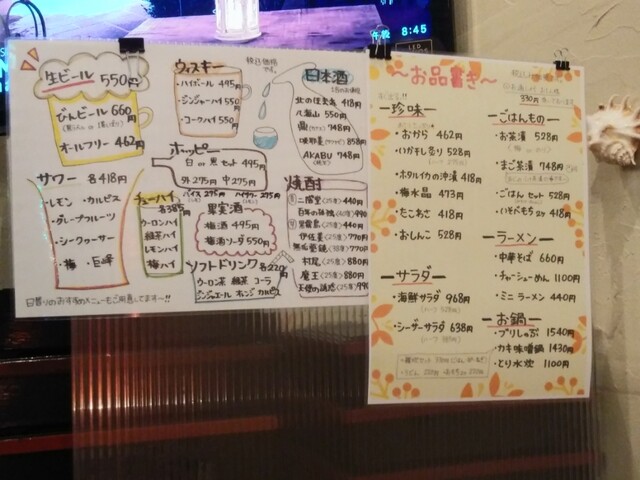 8:45
生ビール 550円
びんビール 660円
オールフリー 462円
サワー 各418円
・レモン ・カルピス
・グレープフルーツ
・シークヮーサー
・梅 ・巨峰
日替りのおすすめメニューもご用意してます〜!!
ウィスキー
・ハイボール 495円
・ジンジャーハイ 550円
・コークハイ 550円
ホッピー
白 or 黒 セット 495円
外 275円 中 275円
チューハイ
各385円
ウーロンハイ
緑茶ハイ
レモンハイ
梅ハイ
果実酒
梅酒 495円
梅酒ソーダ 550円
ソフトドリンク 各220円
ウーロン茶 緑茶 コーラ
ジンジャエール オレンジ カルピス
税込価格です。
日本酒
北の誉 418円
八海山 550円
748円
AKABU 748円
焼酎
二階堂(25度) 440円
黒霧島(25度) 440円
伊佐美(25度) 770円
770円
村尾(25度) 880円
魔王(25度) 880円
天使の誘惑 990円
〜お品書き〜
珍味
・おから 462円
・いか干し炙り 528円
・ホタルイカの沖漬 418円
・梅水晶 473円
・たこわさ 418円
・おしんこ 528円
サラダ
・海鮮サラダ 968円
・シーザーサラダ 638円
ごはんもの
・お茶漬 528円
・まご茶漬 748円
・ごはんセット 528円
・いそべもち 2ケ 418円
ラーメン
・中華そば 660円
・チャーシューめん 1100円
・ミニラーメン 440円
お鍋
・ブリしゃぶ 1540円
・カキ味噌鍋 1430円
・とり水炊 1100円